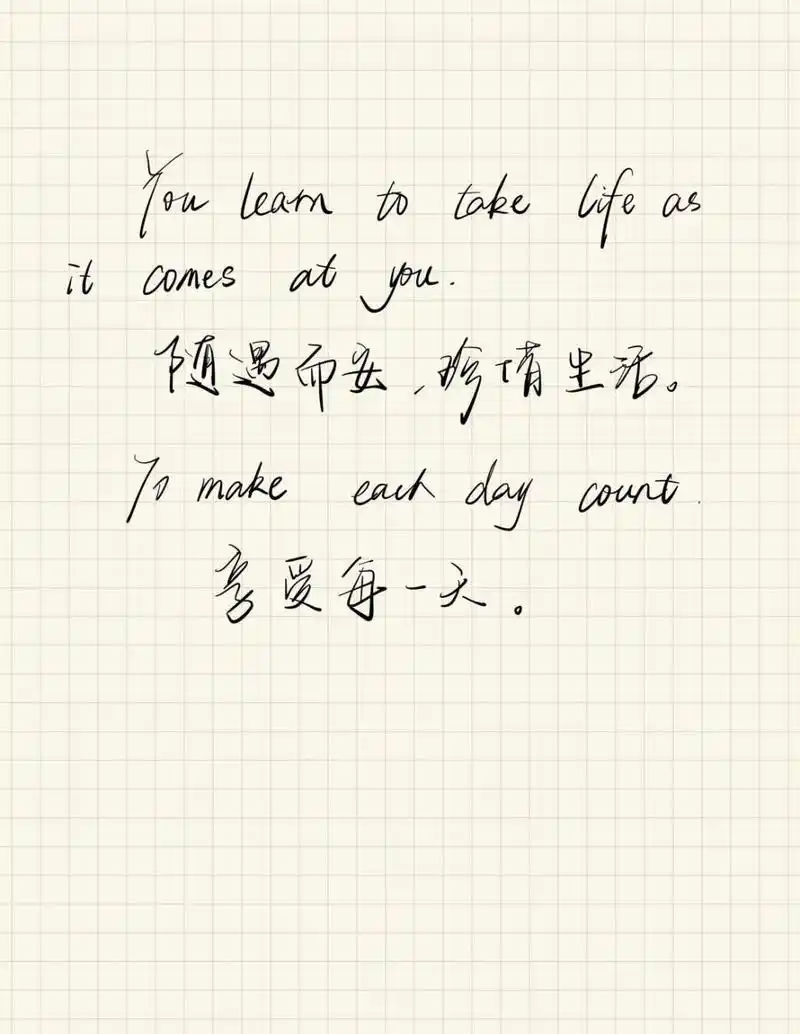 You learn to take life as
it comes at you.
随遇而安,珍惜生活。
To make each day count.
享受每一天。